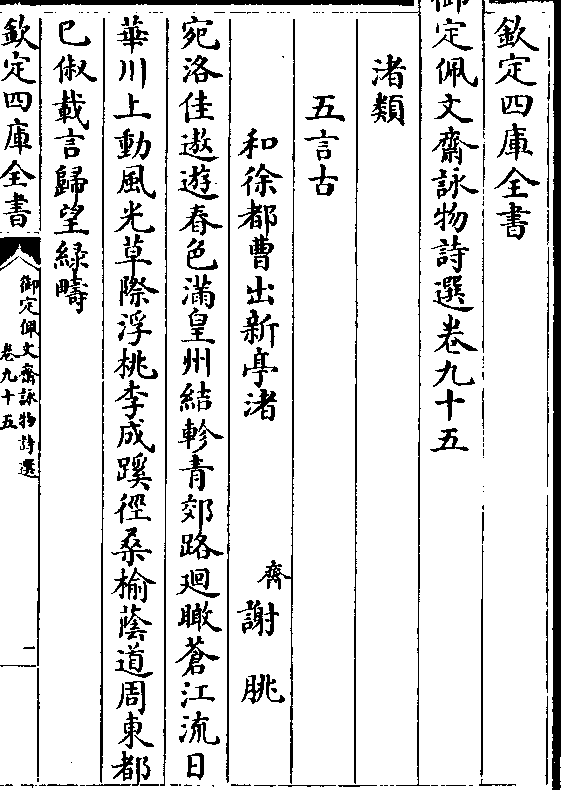 欽定四庫全書
御定佩文齋詠物詩選卷九十五
渚類
五言古
和徐都曹出新亭渚
齊謝朓
宛洛佳遨遊春色滿皇州結軫青郊路廻瞰蒼江流日
華川上動風光草際浮桃李成蹊徑桑榆蔭道周東都
巳俶載言歸望緑疇
欽定四庫全書
御定佩文齋詠物詩選
卷九十五
一